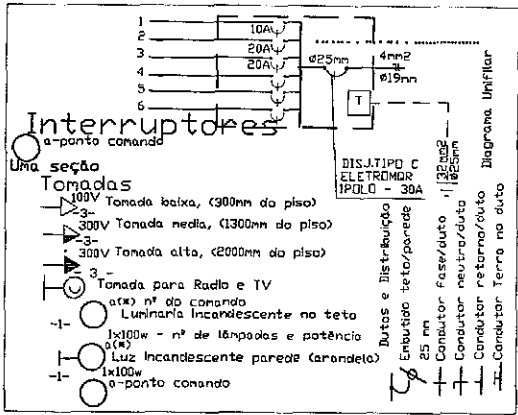 1
2
3
4
5
6
10A
20A
20A
ø25mm
4mm2
ø19mm
T
DISJ.TIPO C
ELETROMQR
1POLO - 30A
32mm2
ø25mm
Diagrama Unifilar
Interruptores
a-ponto comando
Uma seção
Tomadas
100V Tomada baixa, (300mm do piso)
-3-
300V Tomada media, (1300mm do piso)
-3-
300V Tomada alta, (2000mm do piso)
-3-
Tomada para Radio e TV
a(*) nº do comando
Luminaria Incandescente no teto
-1-
1x100w - nº de lâmpadas e potência
a(*)
Luz Incandescente parede (arandela)
-1-
1x100w
a-ponto comando
Dutos e Distribuição
Embutido teto/parede
25 mm
Condutor fase/duto
Condutor neutro/duto
Condutor retorno/duto
Condutor Terra no duto